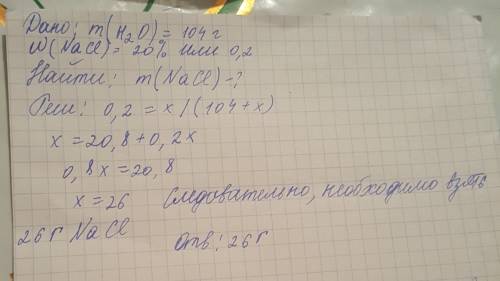 Дано: m(H₂O) = 104 г
W(NaCl) = 20% или 0,2
Найти: m(NaCl)-?
Реш: 0,2 = x/(104+x)
x = 20,8+0,2x
0,8x = 20,8
x = 26 Следовательно, необходимо взять
26 г NaCl
Отв: 26 г